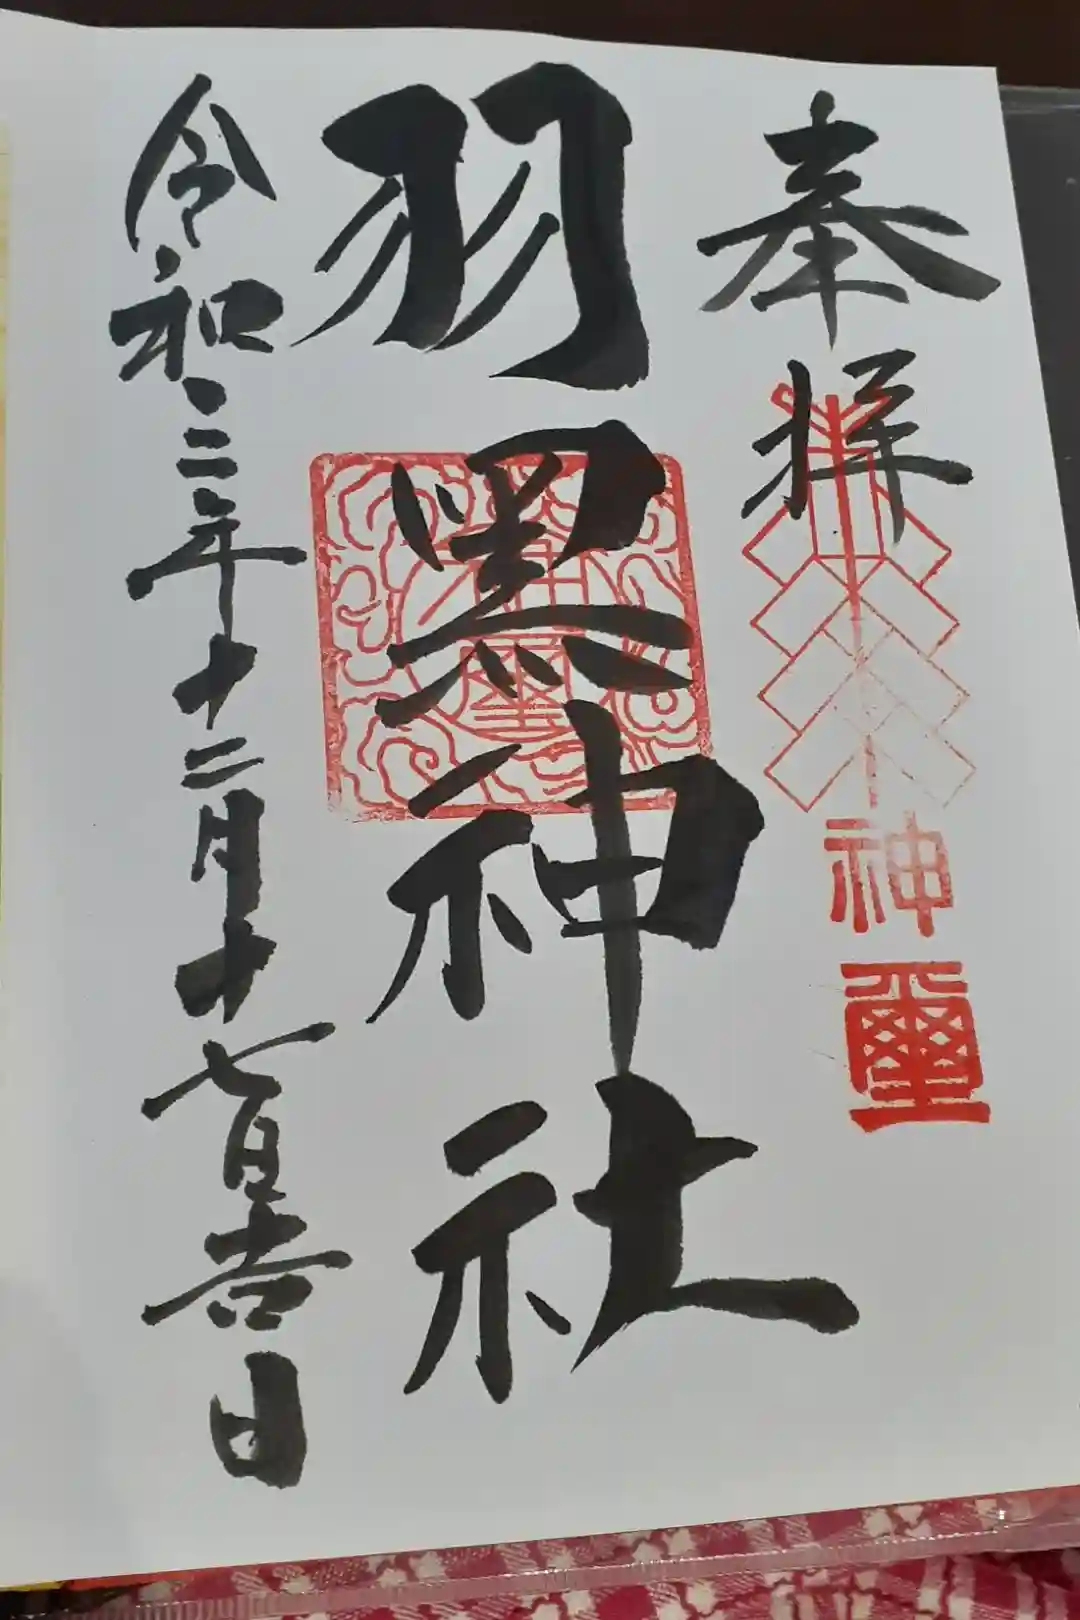 奉拝
神璽
羽黑神社
令和三年十二月十七日吉日